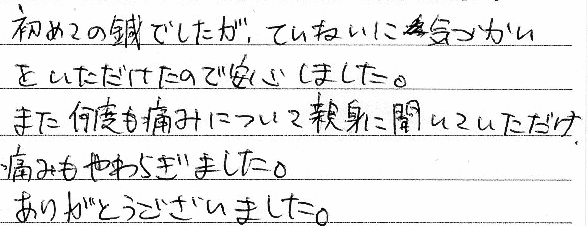 初めての鍼でしたが、ていねいに気づかい
をいただけたので安心しました。
また何度も痛みについて親身に聞いていただけ、
痛みもやわらぎました。
ありがとうございました。